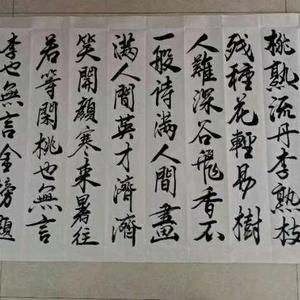 桃熟流丹李熟枝
残種花輕易樹
人難深谷飛香不
一般诗满人間畫
满人間英才濟濟
笑開顏寒来暑往
若等閑桃也無言
李也無言金榜題